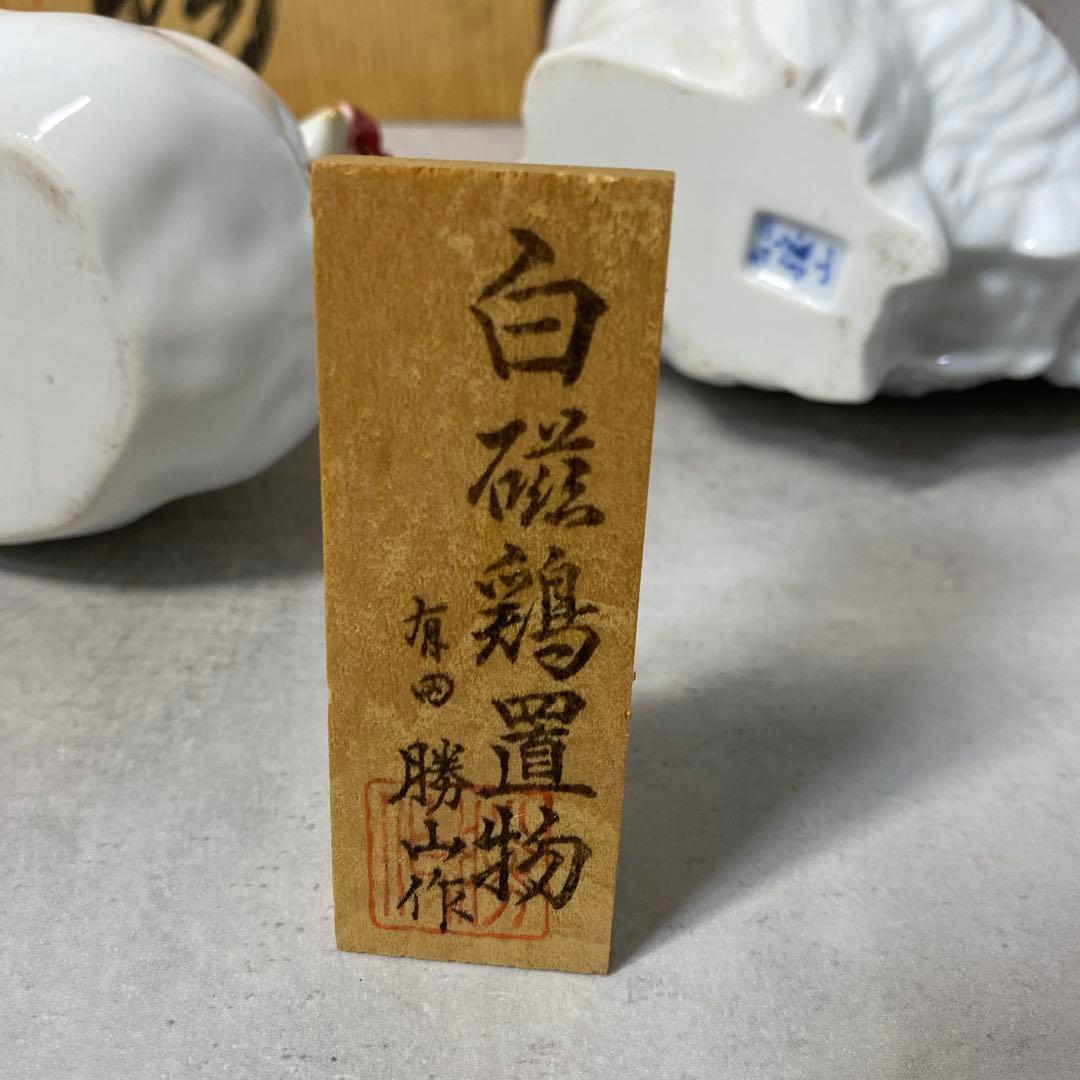 白磁鶏置物
有田 勝山作